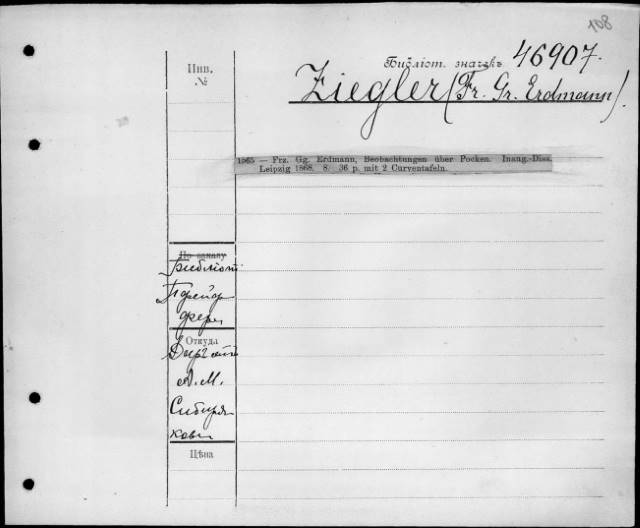 108
Библіот. значекъ 46907.
Инв.
№
Ziegler (Fr. Gr. Erdmann).
1965 — Frz. Gg. Erdmann, Beobachtungen über Pocken. Inaug.-Diss.
Leipzig 1868. 8. 36 p. mit 2 Curventafeln.
По заказу
Библіот
Пфейф
фера
Откуда
А. М.
Сибиря
кова
Цѣна